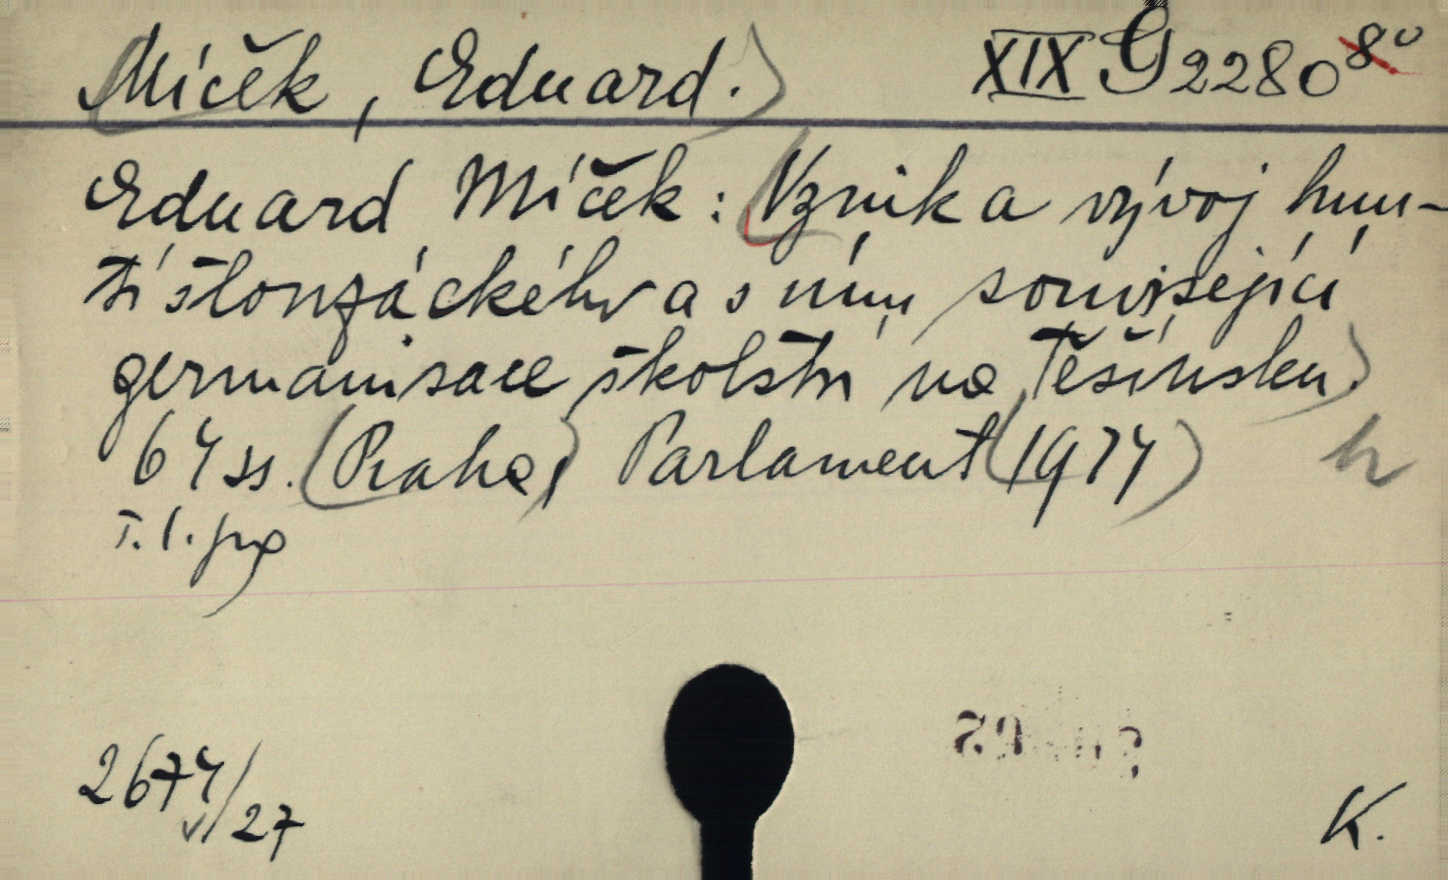 Míček, Eduard. XIX G 2280 8°
Eduard Míček: Vznik a vývoj hnu-
tí šlonzáckého a s ním související
germanisace školství na Těšínsku.
64 ss. (Praha, Parlament (1914)
T. l.
2674/27
K.